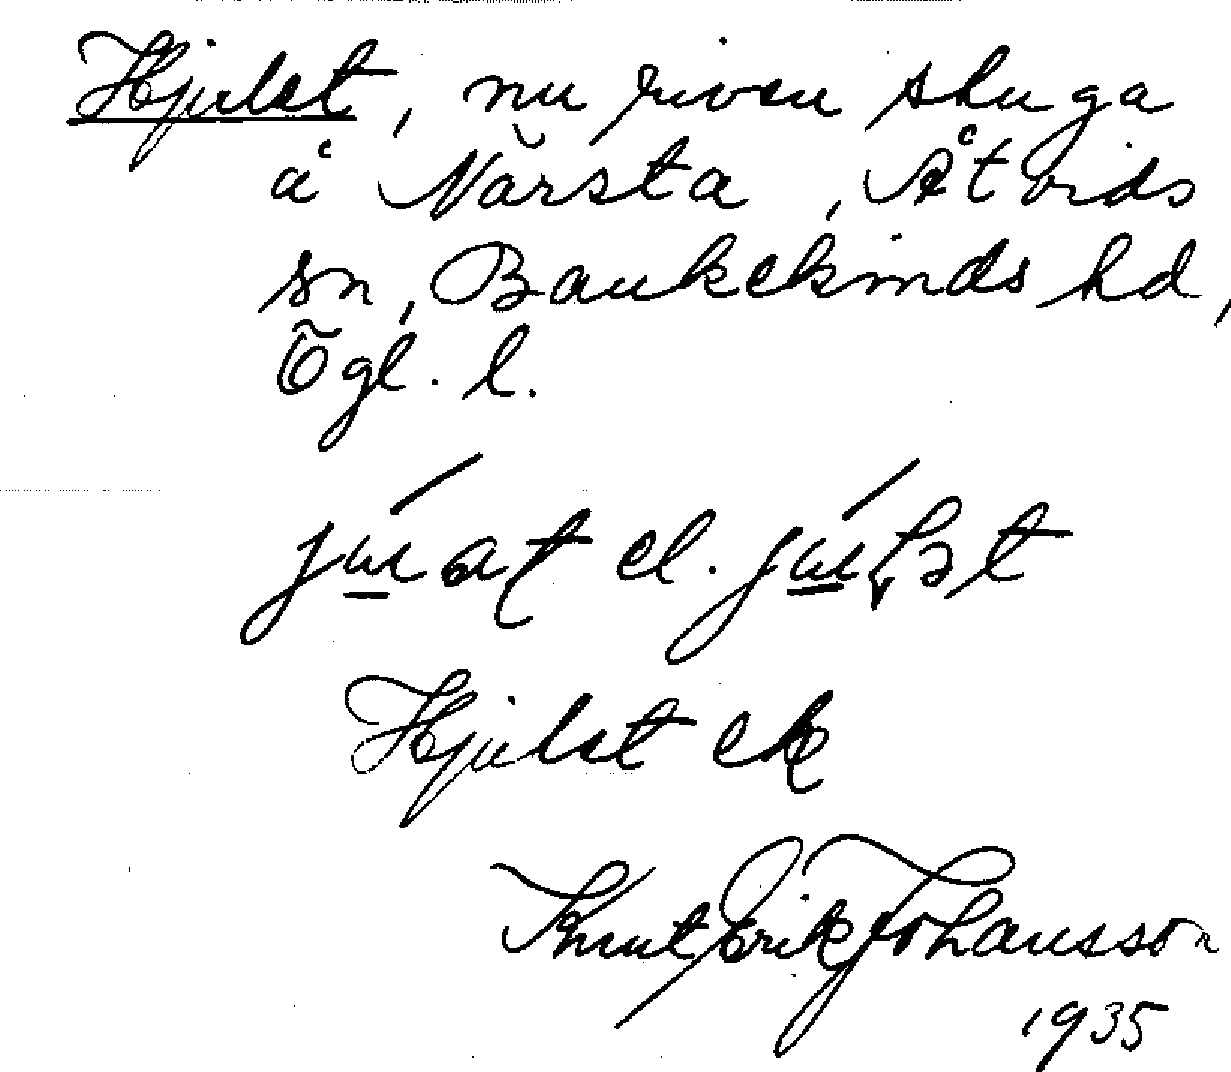 Hjulst, nu riven stuga
å Närsta, Åtvids
sn, Bankekinds hd,
Ögl. l.
el.
Hjulst ek
Knut Erik Johansson
1935